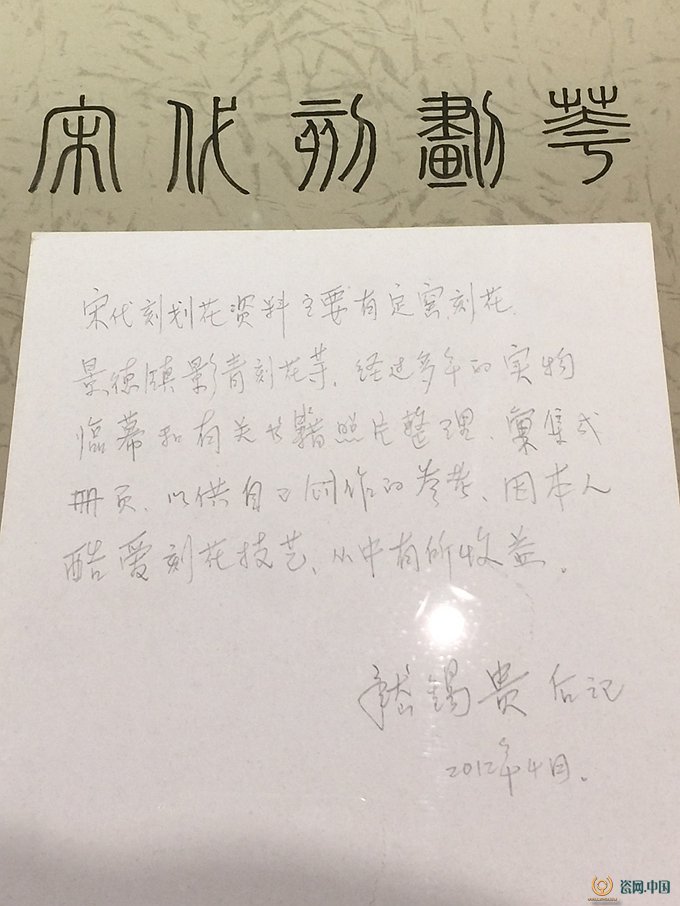 宋代刻劃花
宋代刻划花资料主要有定窑刻花.
景德镇影青刻花等、经过多年的实物
临摹和有关书籍照片整理、汇集式
册页、以供自己创作的参考、因本人
酷爱刻花技艺、从中有所收益。
嵇锡贵 后记
2012年4月.
瓷网.中国